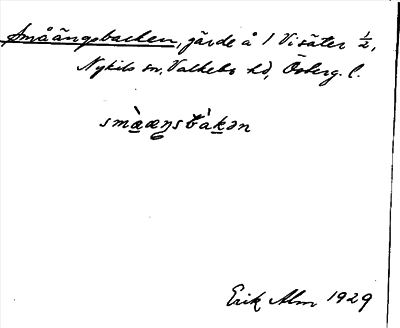 Småängsbacken, gärde å 1 Visäter 1/2,
Nykils sn, Valkebo hd, Österg. l.
smàæŋsbàkən
Erik Alm 1929